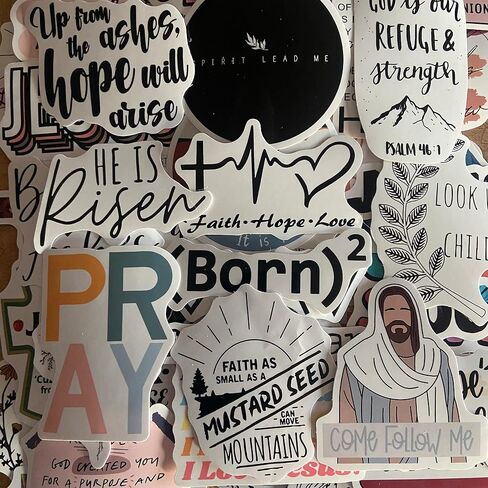 Up from
the ashes,
hope will
arise
SPIRIT LEAD ME
GOD is our
REFUGE &
strength
PSALM 46:1
HE IS
Risen
Faith • Hope • Love
It is
(Born)²
LOOK
CHILD
PR
AY
FAITH AS
SMALL AS A
MUSTARD SEED
CAN
MOVE
MOUNTAINS
COME FOLLOW ME
GOD CREATED YOU
FOR A PURPOSE AND
I Love Jesus!